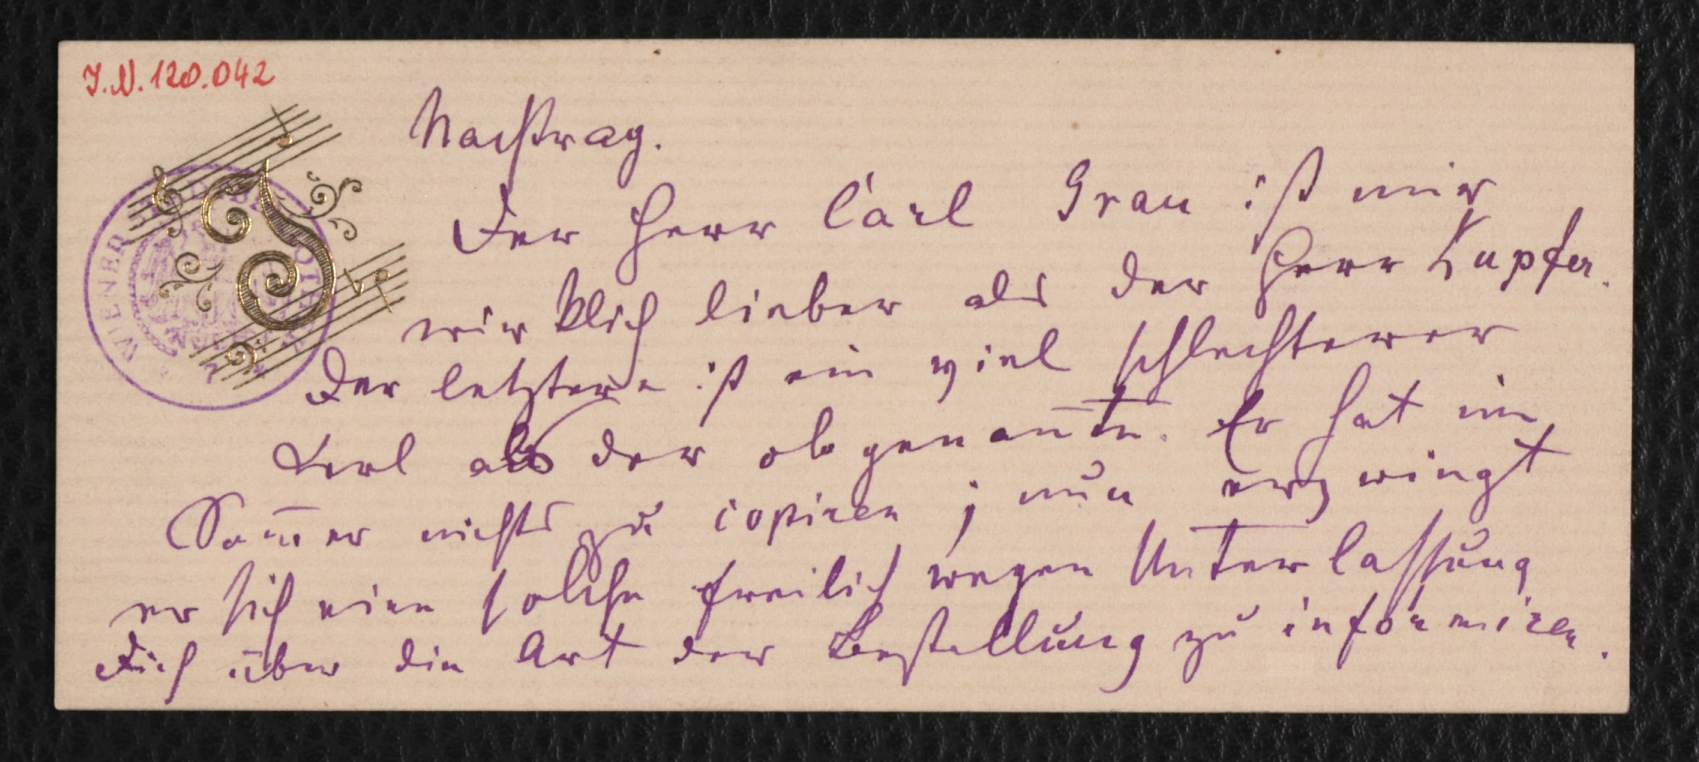 I.N. 120.042
Nachtrag.
Der Herr Carl Grau ist mir
wirklich lieber als der Herr Kupfer.
Der letztere ist ein viel schlechterer
Kerl als der obgenan̄te. Er hat im
Som̄er nichts zu copiren; nun erzwingt
er sich eine solche freilich wegen Unterlassung
Dich über die Art der Bestellung zu informiren.
WIENER STADTBIBLIOTHEK